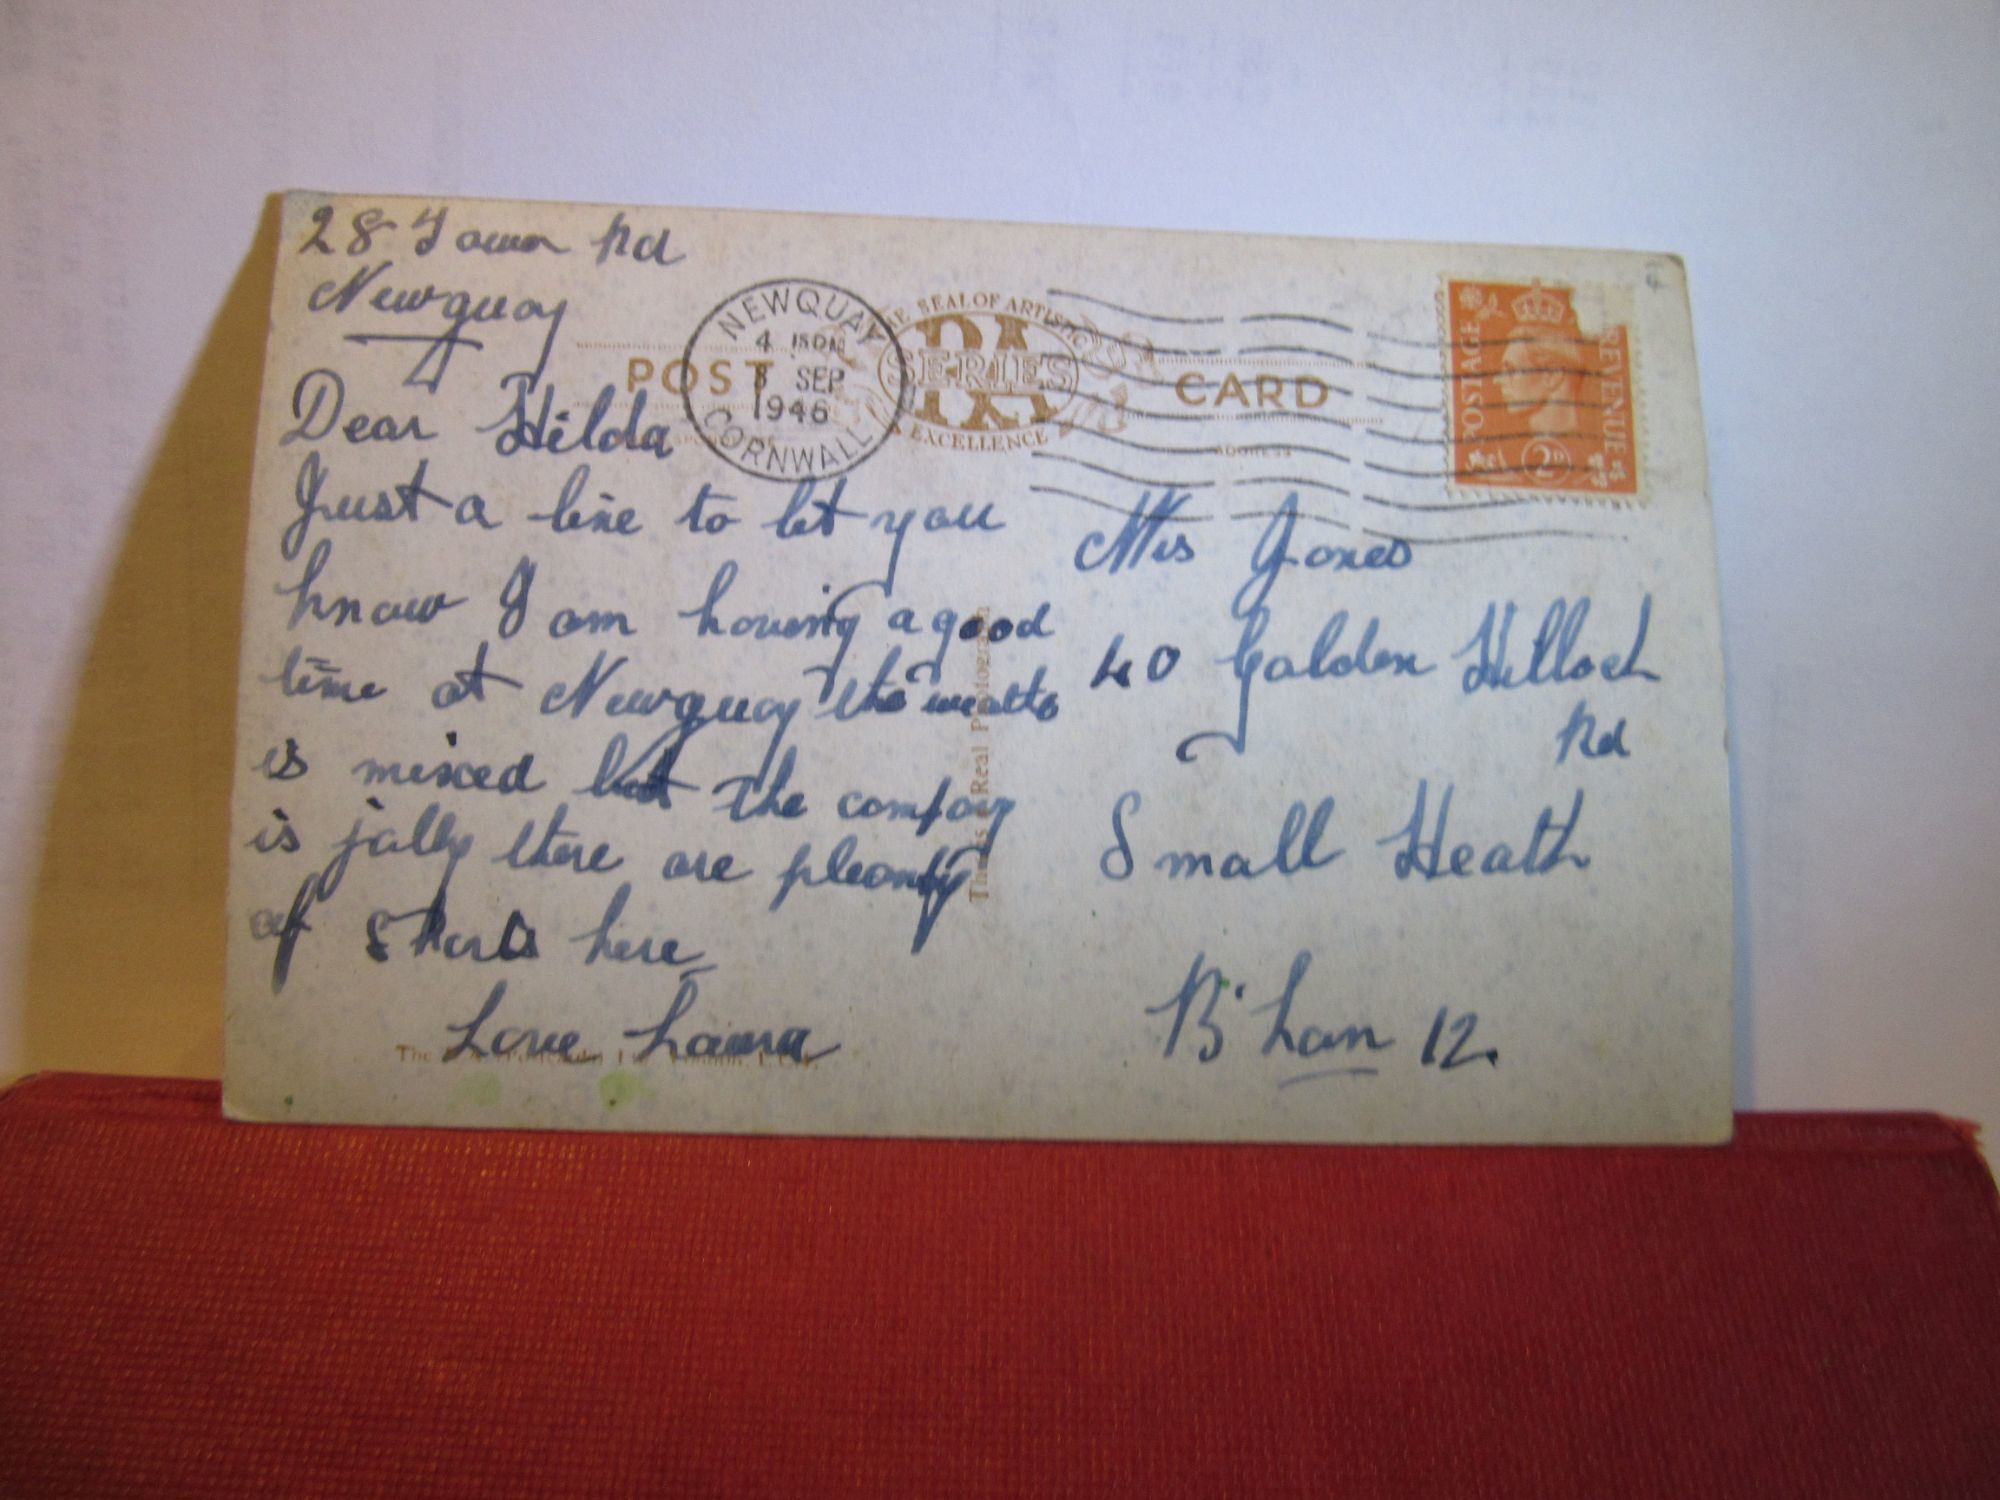 28 Town Rd
Newquay
Dear Hilda
Just a line to let you
know I am having a good
time at Newquay the weathe
is mixed but the compay
is jolly there are pleanty
of shorts here
Love Laura
POST CARD
THE SEAL OF ARTISTIC
SERIES
EXCELLENCE
ADDRESS
NEWQUAY
4 15 PM
3 SEP
1946
CORNWALL
POSTAGE REVENUE
2D
Mis Jones
40 Golden Hilloch
Rd
Small Heath
B'ham 12.
This is a Real Photograph